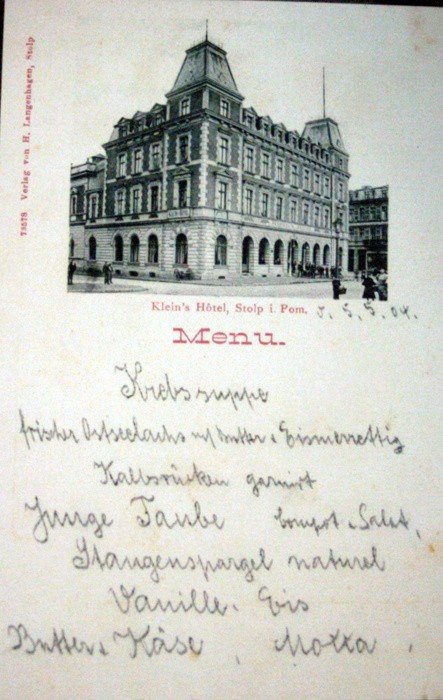 73578 Verlag von H. Langenhagen, Stolp
Klein's Hôtel, Stolp i. Pom. v. 5.5.04.
Menu.
Krebssuppe
frischer Ostseelachs m/ Butter u Eismerrettig
Kalbsrücken garnirt
Junge Taube Compot u Salat,
Stangenspargel naturel
Vanille-Eis
Butter u Käse, Mokka.